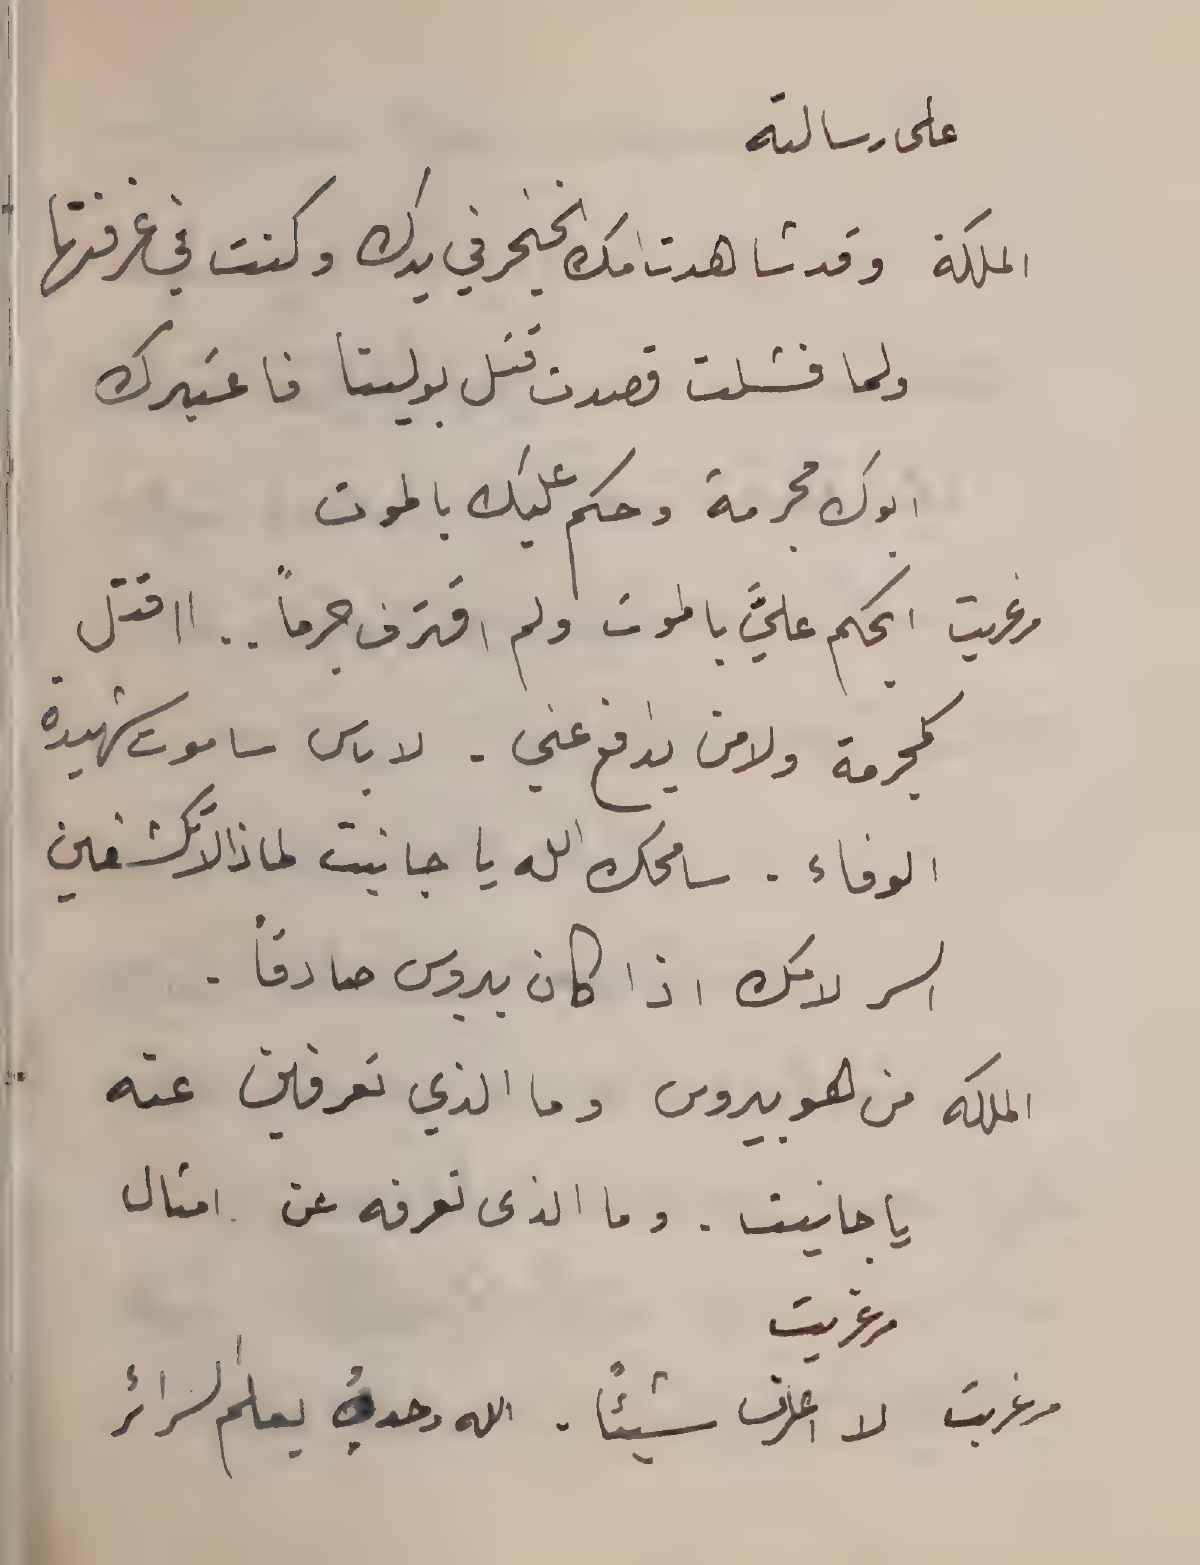 على رسالته
الملكة وقد شاهدت امك الخنجر في يدك وكنت في غرفتها
ولما فشلت قصدت قتل بوليتا فاعتبرك
ابوك مجرمة وحكم عليك بالموت
مرغريت ايحكم عليَّ بالموت ولم اقترف جرماً .. ااقتل
كمجرمة ولا من يدافع عني . لا باس ساموت شهيدة
الوفاء . سامحك الله يا جانيت لماذا لا تكشفين
السر لامك اذا كان بيروس صادقاً .
الملكه من هو بيروس وما الذي تعرفين عنه
يا جانيت . وما الذى تعرفه عن امثال
مرغريت
مرغريت لا اعرف شيئاً . الله وحده يعلم السرائر